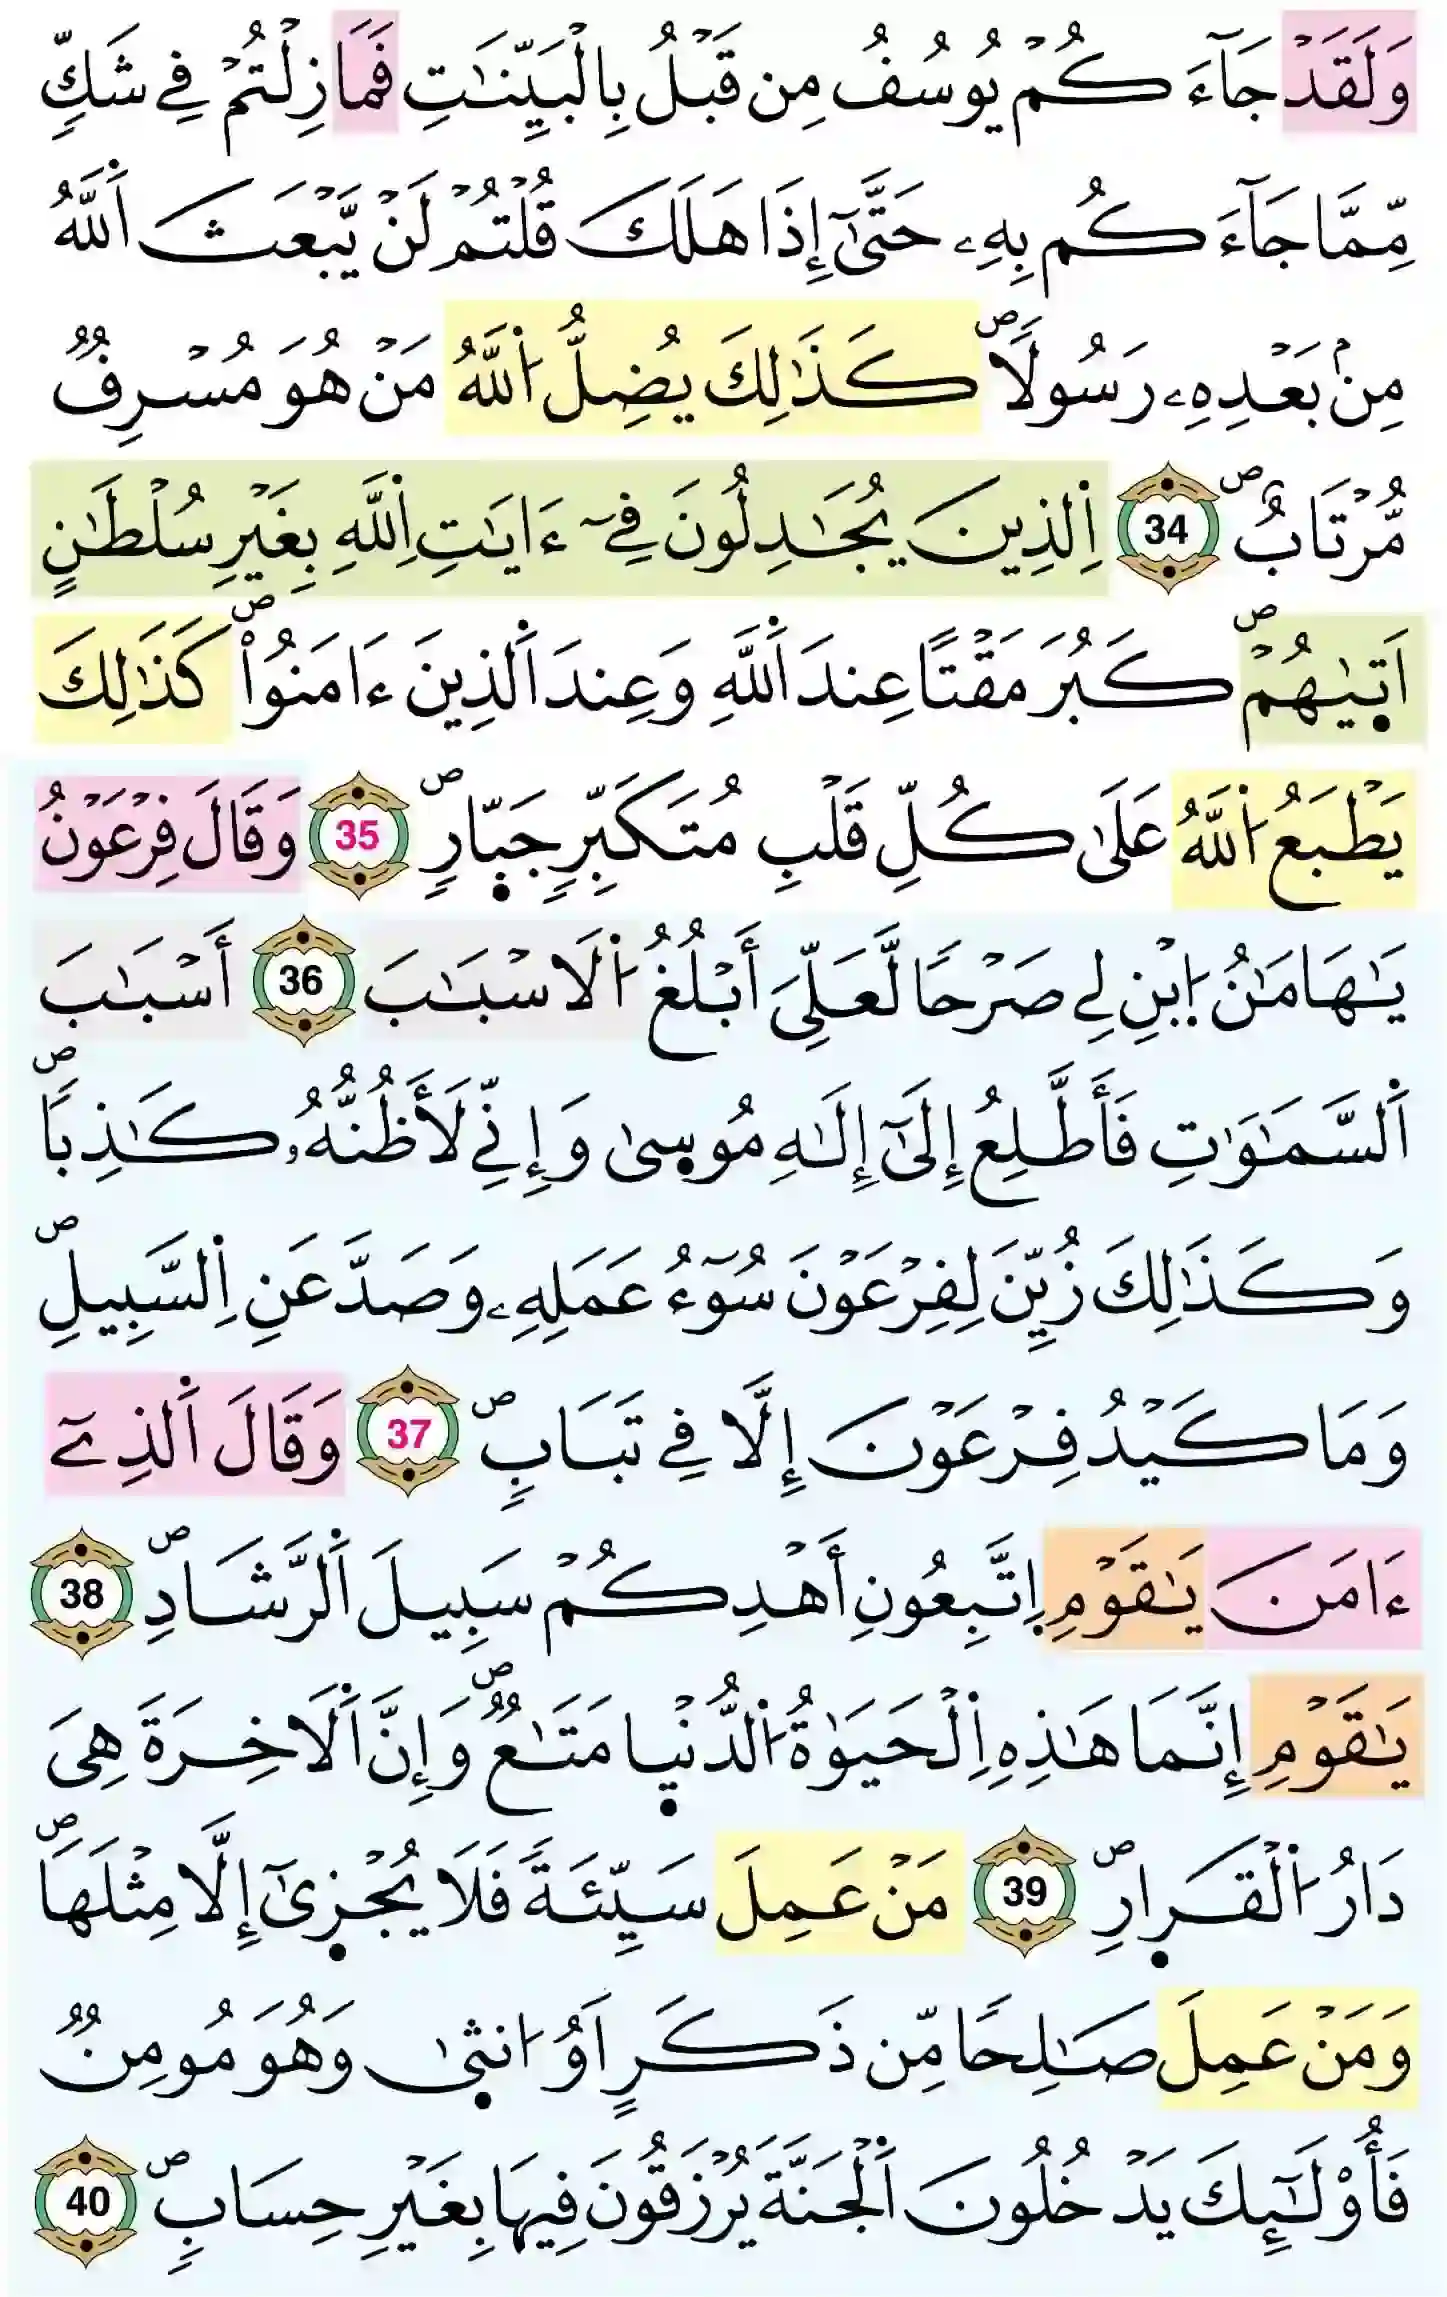 وَلَقَدْ جَآءَكُمْ يُوسُفُ مِن قَبْلُ بِالْبَيِّنَٰتِ فَمَا زِلْتُمْ فِے شَكٍّ
مِّمَّا جَآءَكُم بِهِۦ حَتَّىٰٓ إِذَا هَلَكَ قُلْتُمْ لَنْ يَّبْعَثَ اَ۬للَّهُ
مِنۢ بَعْدِهِۦ رَسُولاٗۖ كَذَٰلِكَ يُضِلُّ اُ۬للَّهُ مَنْ هُوَ مُسْرِفٞ
مُّرْتَابٌۖ 34 اِ۬لذِينَ يُجَٰدِلُونَ فِےٓ ءَايَٰتِ اِ۬للَّهِ بِغَيْرِ سُلْطَٰنٍ
اَتٜىٰهُمْۖ كَبُرَ مَقْتاً عِندَ اَ۬للَّهِ وَعِندَ اَ۬لذِينَ ءَامَنُواْۖ كَذَٰلِكَ
يَطْبَعُ اُ۬للَّهُ عَلَىٰ كُلِّ قَلْبِ مُتَكَبِّرٖ جَبّٜارٖۖ 35 وَقَالَ فِرْعَوْنُ
يَٰهَامَٰنُ اُ۪بْنِ لِے صَرْحاٗ لَّعَلِّيَ أَبْلُغُ اُ۬لَاسْبَٰبَ 36 أَسْبَٰبَ
اَ۬لسَّمَٰوَٰتِ فَأَطَّلِعُ إِلَىٰٓ إِلَٰهِ مُوسٜىٰ وَإِنِّے لَأَظُنُّهُۥ كَٰذِباٗۖ
وَكَذَٰلِكَ زُيِّنَ لِفِرْعَوْنَ سُوٓءُ عَمَلِهِۦ وَصَدَّ عَنِ اِ۬لسَّبِيلِۖ
وَمَا كَيْدُ فِرْعَوْنَ إِلَّا فِے تَبَابٖۖ 37 وَقَالَ اَ۬لذِےٓ
ءَامَنَ يَٰقَوْمِ اِ۪تَّبِعُونِ أَهْدِكُمْ سَبِيلَ اَ۬لرَّشَادِۖ 38
يَٰقَوْمِ إِنَّمَا هَٰذِهِ اِ۬لْحَيَوٰةُ اُ۬لدُّنْيٜا مَتَٰعٞۖ وَإِنَّ اَ۬لَاخِرَةَ هِيَ
دَارُ اُ۬لْقَرٜارِۖ 39 مَنْ عَمِلَ سَيِّئَةٗ فَلَا يُجْزٜىٰٓ إِلَّا مِثْلَهَاۖ
وَمَنْ عَمِلَ صَٰلِحاٗ مِّن ذَكَرٍ اَوُ ا۟نثٜىٰ وَهُوَ مُومِنٞ
فَأُوْلَٰٓئِكَ يَدْخُلُونَ اَ۬لْجَنَّةَ يُرْزَقُونَ فِيهَا بِغَيْرِ حِسَابٖۖ 40